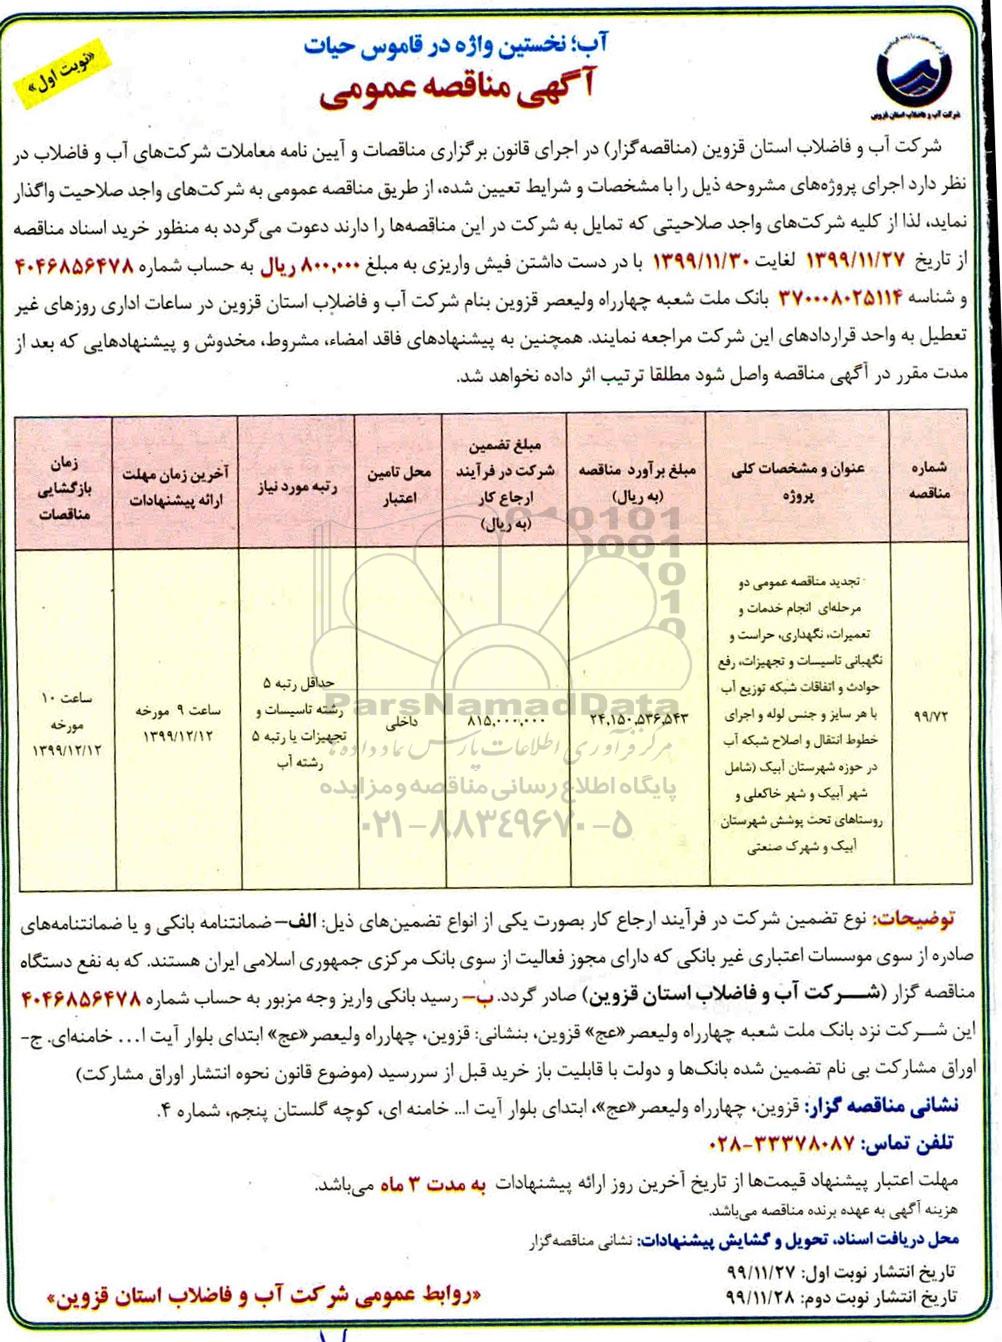 آب؛ نخستین واژه در قاموس حیات
آگهی مناقصه عمومی
«نوبت اول»
شرکت آب و فاضلاب استان قزوین
شرکت آب و فاضلاب استان قزوین (مناقصه‌گزار) در اجرای قانون برگزاری مناقصات و آیین نامه معاملات شرکت‌های آب و فاضلاب در
نظر دارد اجرای پروژه‌های مشروحه ذیل را با مشخصات و شرایط تعیین شده، از طریق مناقصه عمومی به شرکت‌های واجد صلاحیت واگذار
نماید، لذا از کلیه شرکت‌های واجد صلاحیتی که تمایل به شرکت در این مناقصه‌ها را دارند دعوت می‌گردد به منظور خرید اسناد مناقصه
از تاریخ ۱۳۹۹/۱۱/۲۷ لغایت ۱۳۹۹/۱۱/۳۰ با در دست داشتن فیش واریزی به مبلغ ۸۰۰,۰۰۰ ریال به حساب شماره ۴۰۴۶۸۵۶۴۷۸
و شناسه ۳۷۰۰۰۸۰۲۵۱۱۴ بانک ملت شعبه چهارراه ولیعصر قزوین بنام شرکت آب و فاضلاب استان قزوین در ساعات اداری روزهای غیر
تعطیل به واحد قراردادهای این شرکت مراجعه نمایند. همچنین به پیشنهادهای فاقد امضاء، مشروط، مخدوش و پیشنهادهایی که بعد از
مدت مقرر در آگهی مناقصه واصل شود مطلقا ترتیب اثر داده نخواهد شد.
شماره
مناقصه
عنوان و مشخصات کلی
پروژه
مبلغ برآورد مناقصه
(به ریال)
مبلغ تضمین
شرکت در فرآیند
ارجاع کار
(به ریال)
محل تامین
اعتبار
رتبه مورد نیاز
آخرین زمان مهلت
ارائه پیشنهادات
زمان
بازگشایی
مناقصات
۹۹/۷۲
تجدید مناقصه عمومی دو
مرحله‌ای انجام خدمات و
تعمیرات، نگهداری، حراست و
نگهبانی تاسیسات و تجهیزات، رفع
حوادث و اتفاقات شبکه توزیع آب
با هر سایز و جنس لوله و اجرای
خطوط انتقال و اصلاح شبکه آب
در حوزه شهرستان آبیک (شامل
شهر آبیک و شهر خاکعلی و
روستاهای تحت پوشش شهرستان
آبیک و شهرک صنعتی
۲۴,۱۵۰,۵۳۶,۵۴۳
۸۱۵,۰۰۰,۰۰۰
داخلی
حداقل رتبه ۵
رشته تاسیسات و
تجهیزات یا رتبه ۵
رشته آب
ساعت ۹ مورخه
۱۳۹۹/۱۲/۱۲
ساعت ۱۰
مورخه
۱۳۹۹/۱۲/۱۲
ParsNamadData
مرکز فرآوری اطلاعات پارس نماد داده‌ها
پایگاه اطلاع رسانی مناقصه و مزایده
۰۲۱-۸۸۳۴۹۶۷۰-۵
توضیحات: نوع تضمین شرکت در فرآیند ارجاع کار بصورت یکی از انواع تضمین‌های ذیل: الف- ضمانتنامه بانکی و یا ضمانتنامه‌های
صادره از سوی موسسات اعتباری غیر بانکی که دارای مجوز فعالیت از سوی بانک مرکزی جمهوری اسلامی ایران هستند. که به نفع دستگاه
مناقصه گزار (شرکت آب و فاضلاب استان قزوین) صادر گردد. ب- رسید بانکی واریز وجه مزبور به حساب شماره ۴۰۴۶۸۵۶۴۷۸
این شرکت نزد بانک ملت شعبه چهارراه ولیعصر«عج» قزوین، بنشانی: قزوین، چهارراه ولیعصر«عج» ابتدای بلوار آیت ا... خامنه‌ای. ج-
اوراق مشارکت بی نام تضمین شده بانک‌ها و دولت با قابلیت باز خرید قبل از سررسید (موضوع قانون نحوه انتشار اوراق مشارکت)
نشانی مناقصه گزار: قزوین، چهارراه ولیعصر«عج»، ابتدای بلوار آیت ا... خامنه ای، کوچه گلستان پنجم، شماره ۴.
تلفن تماس: ۳۳۳۷۸۰۸۷-۰۲۸
مهلت اعتبار پیشنهاد قیمت‌ها از تاریخ آخرین روز ارائه پیشنهادات به مدت ۳ ماه می‌باشد.
هزینه آگهی به عهده برنده مناقصه می‌باشد.
محل دریافت اسناد، تحویل و گشایش پیشنهادات: نشانی مناقصه‌گزار
تاریخ انتشار نوبت اول: ۹۹/۱۱/۲۷
تاریخ انتشار نوبت دوم: ۹۹/۱۱/۲۸
«روابط عمومی شرکت آب و فاضلاب استان قزوین»